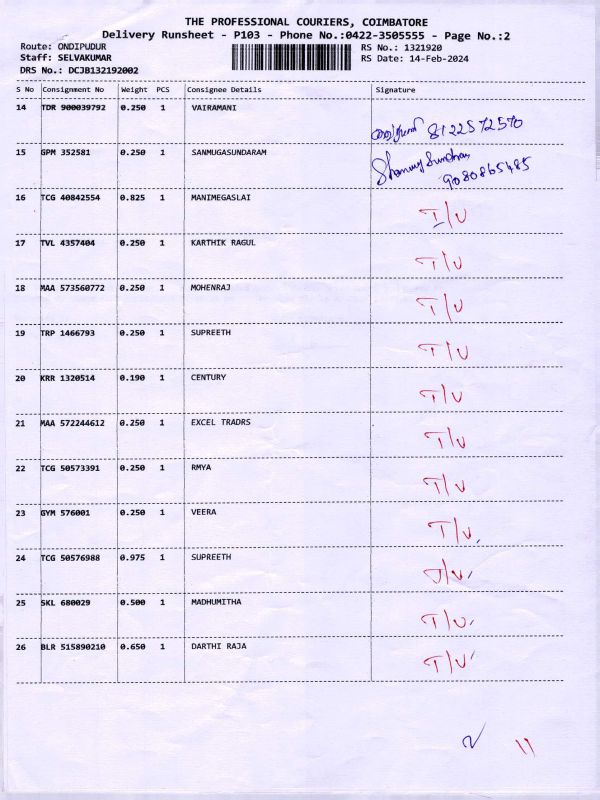 THE PROFESSIONAL COURIERS, COIMBATORE
Delivery Runsheet - P103 - Phone No.:0422-3505555 - Page No.:2
Route: ONDIPUDUR RS No.: 1321920
Staff: SELVAKUMAR RS Date: 14-Feb-2024
DRS No.: DCJB132192002
S No Consignment No Weight PCS Consignee Details Signature
14 TDR 900039792 0.250 1 VAIRAMANI
8122572570
15 GPM 352581 0.250 1 SANMUGASUNDARAM
9080865485
16 TCG 40842554 0.825 1 MANIMEGASLAI
T/U
17 TVL 4357404 0.250 1 KARTHIK RAGUL
T/U
18 MAA 573560772 0.250 1 MOHENRAJ
T/U
19 TRP 1466793 0.250 1 SUPREETH
T/U
20 KRR 1320514 0.190 1 CENTURY
T/U
21 MAA 572244612 0.250 1 EXCEL TRADRS
T/U
22 TCG 50573391 0.250 1 RMYA
T/U
23 GYM 576001 0.250 1 VEERA
T/U
24 TCG 50576988 0.975 1 SUPREETH
T/U
25 SKL 680029 0.500 1 MADHUMITHA
T/U
26 BLR 515890210 0.650 1 DARTHI RAJA
T/U
2 11